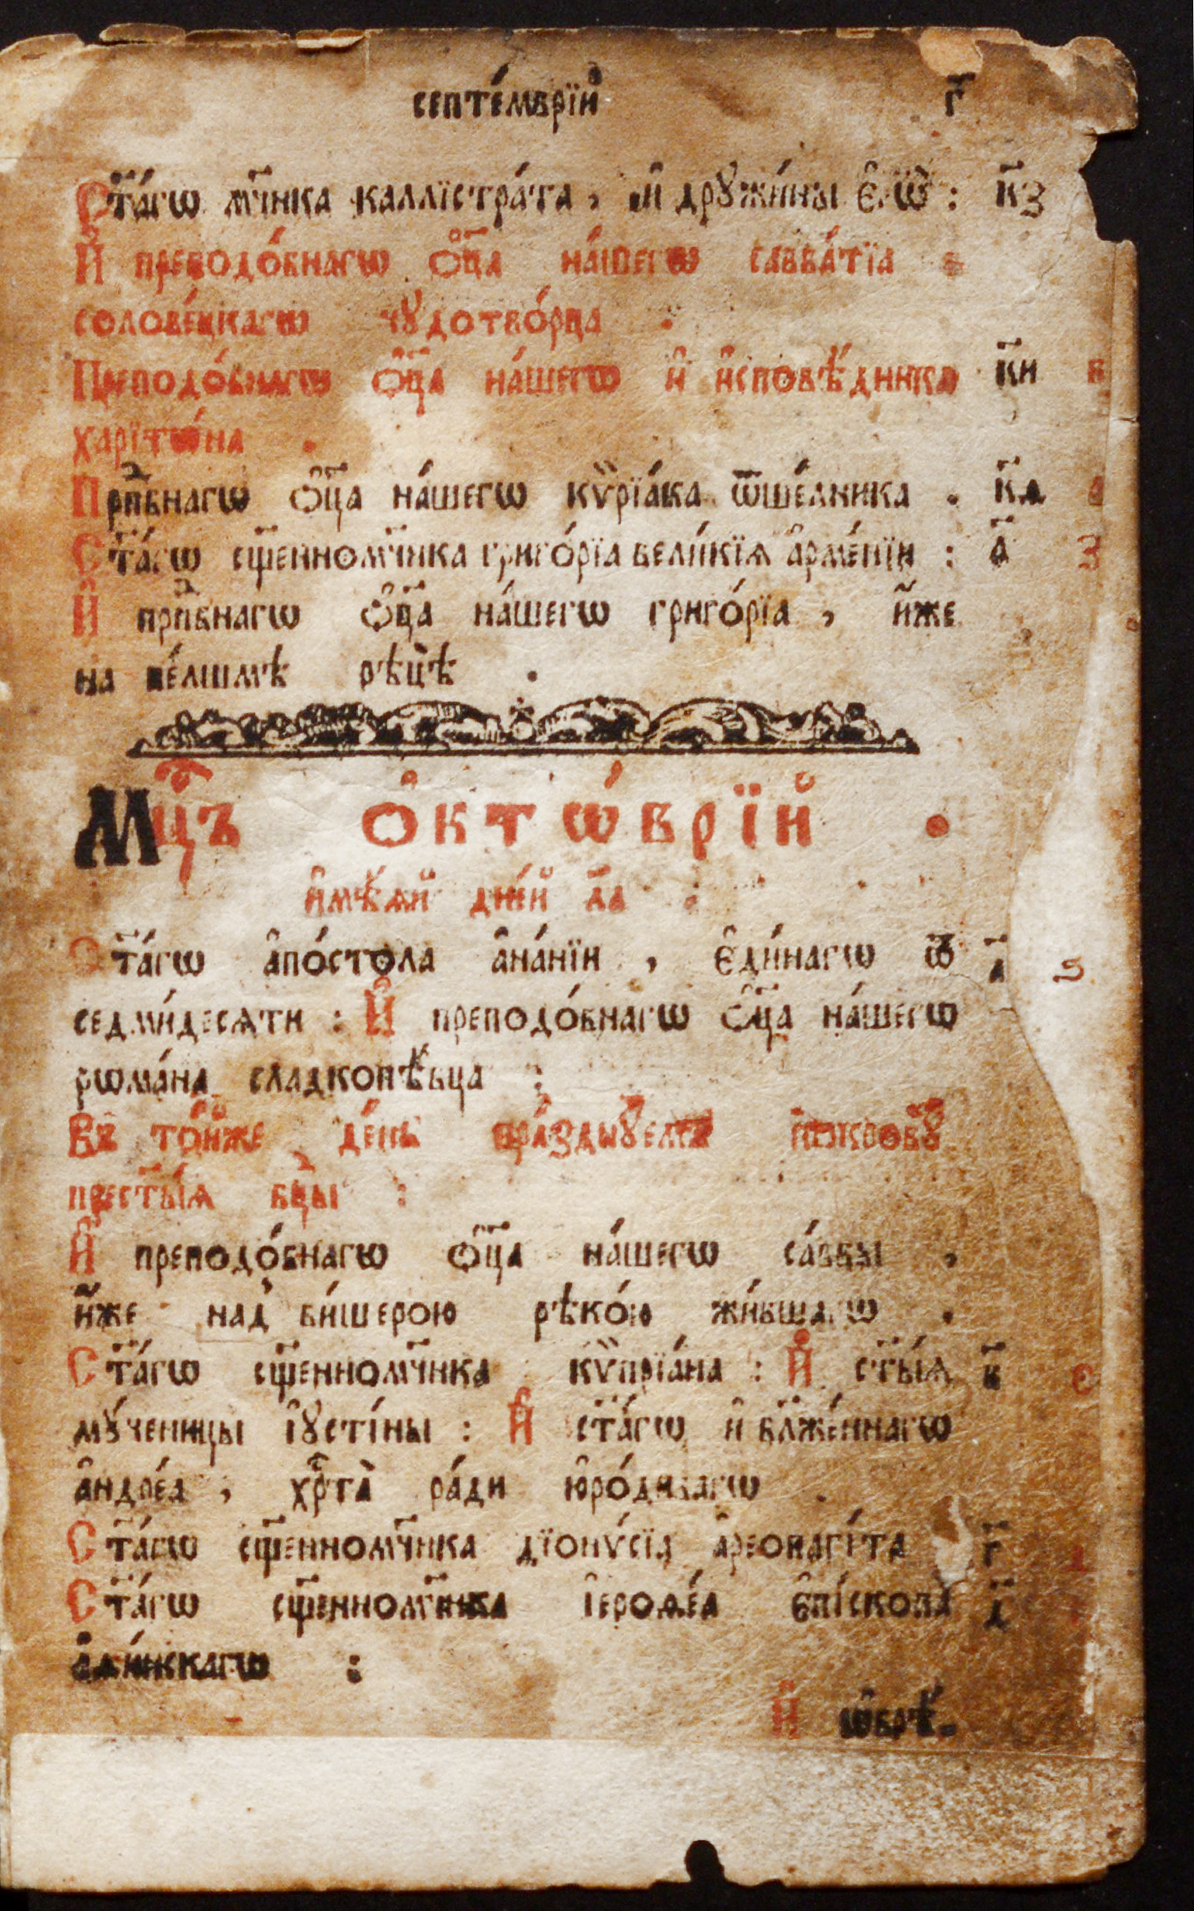 септе́мврїй г҃
Ст҃а́гѡ мч҃нка каллїстра́та , и҆ дрꙋжи́ны є҆гѡ̀ : к҃з
И҆ преподо́бнагѡ ѻ҆ц҃а̀ на́шегѡ савва́тїа
солове́цкагѡ чꙋдотво́рца .
Преподо́бнагѡ ѻ҆ц҃а̀ на́шегѡ и҆ и҆сповѣ́дника к҃и в
харїтѡ́на .
Прпⷣбнагѡ ѻ҆ц҃а̀ на́шегѡ кѷрїа́ка ѿше́лника . к҃ѳ
Ст҃а́гѡ сщ҃енномч҃нка григо́рїа вели́кїѧ а҆рме́нїи : л҃ З
И҆ прпⷣбнагѡ ѻ҆ц҃а̀ на́шегѡ григо́рїа , и҆́же
на пе́лшмѣ рѣцѣ̀ .
Мцⷭ҇ъ ѻ҆ктѡ́врїй .
и҆мѣ́ѧй дне́й л҃а :
Ст҃а́гѡ а҆по́стола а҆на́нїи , є҆ди́нагѡ ѿ а҃ ѕ
седми́десѧти : И҆ преподо́бнагѡ ѻ҆ц҃а̀ на́шегѡ
рѡма́на сладкопѣ́вца :
Въ то́йже де́нь пра́зднꙋемъ покро́вꙋ
прест҃ы́ѧ бцⷣы :
И҆ преподо́бнагѡ ѻ҆ц҃а̀ на́шегѡ са́ввы ,
и҆́же над̾ ви́шерою рѣко́ю жи́вшагѡ .
Ст҃а́гѡ сщ҃енномч҃нка кѷпрїа́на : И҆ ст҃ы́ѧ в҃ є
мꙋ́ченицы і҆ꙋсті́ны : И҆ ст҃а́гѡ и҆ бл҃же́ннагѡ
а҆ндре́а , хрⷭ҇та̀ ра́ди ю҆ро́дивагѡ
Ст҃а́гѡ сщ҃енномч҃нка дїонѵ́сїа а҆реопагі́та г҃
Ст҃а́гѡ сщ҃енномч҃нка і҆ероѳе́а є҆пі́скопа д҃
а҆ѳи́нскагѡ :
И҆ ѡ҆брѣ́‑